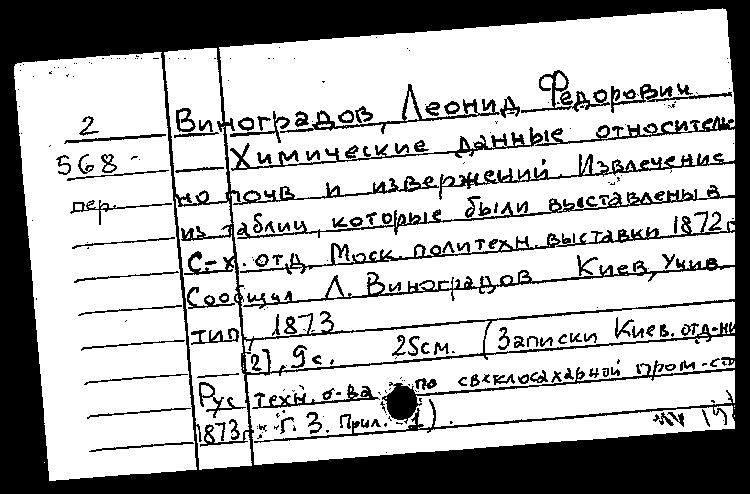 2
568-
пер.
Виноградов, Леонид Федорович
Химические данные относитель
но почв и извержений. Извлечение
из таблиц, которые были выставлены в
С-х. отд. Моск. политехн. выставки 1872г
Сообщил Л. Виноградов Киев, Унив
тип, 1873
[2], 9 с. 25см. (Записки Киев. отд-ни
Рус техн. о-ва по свеклосахарной пром-сти
1873г. Т. 3. Прил. 1).